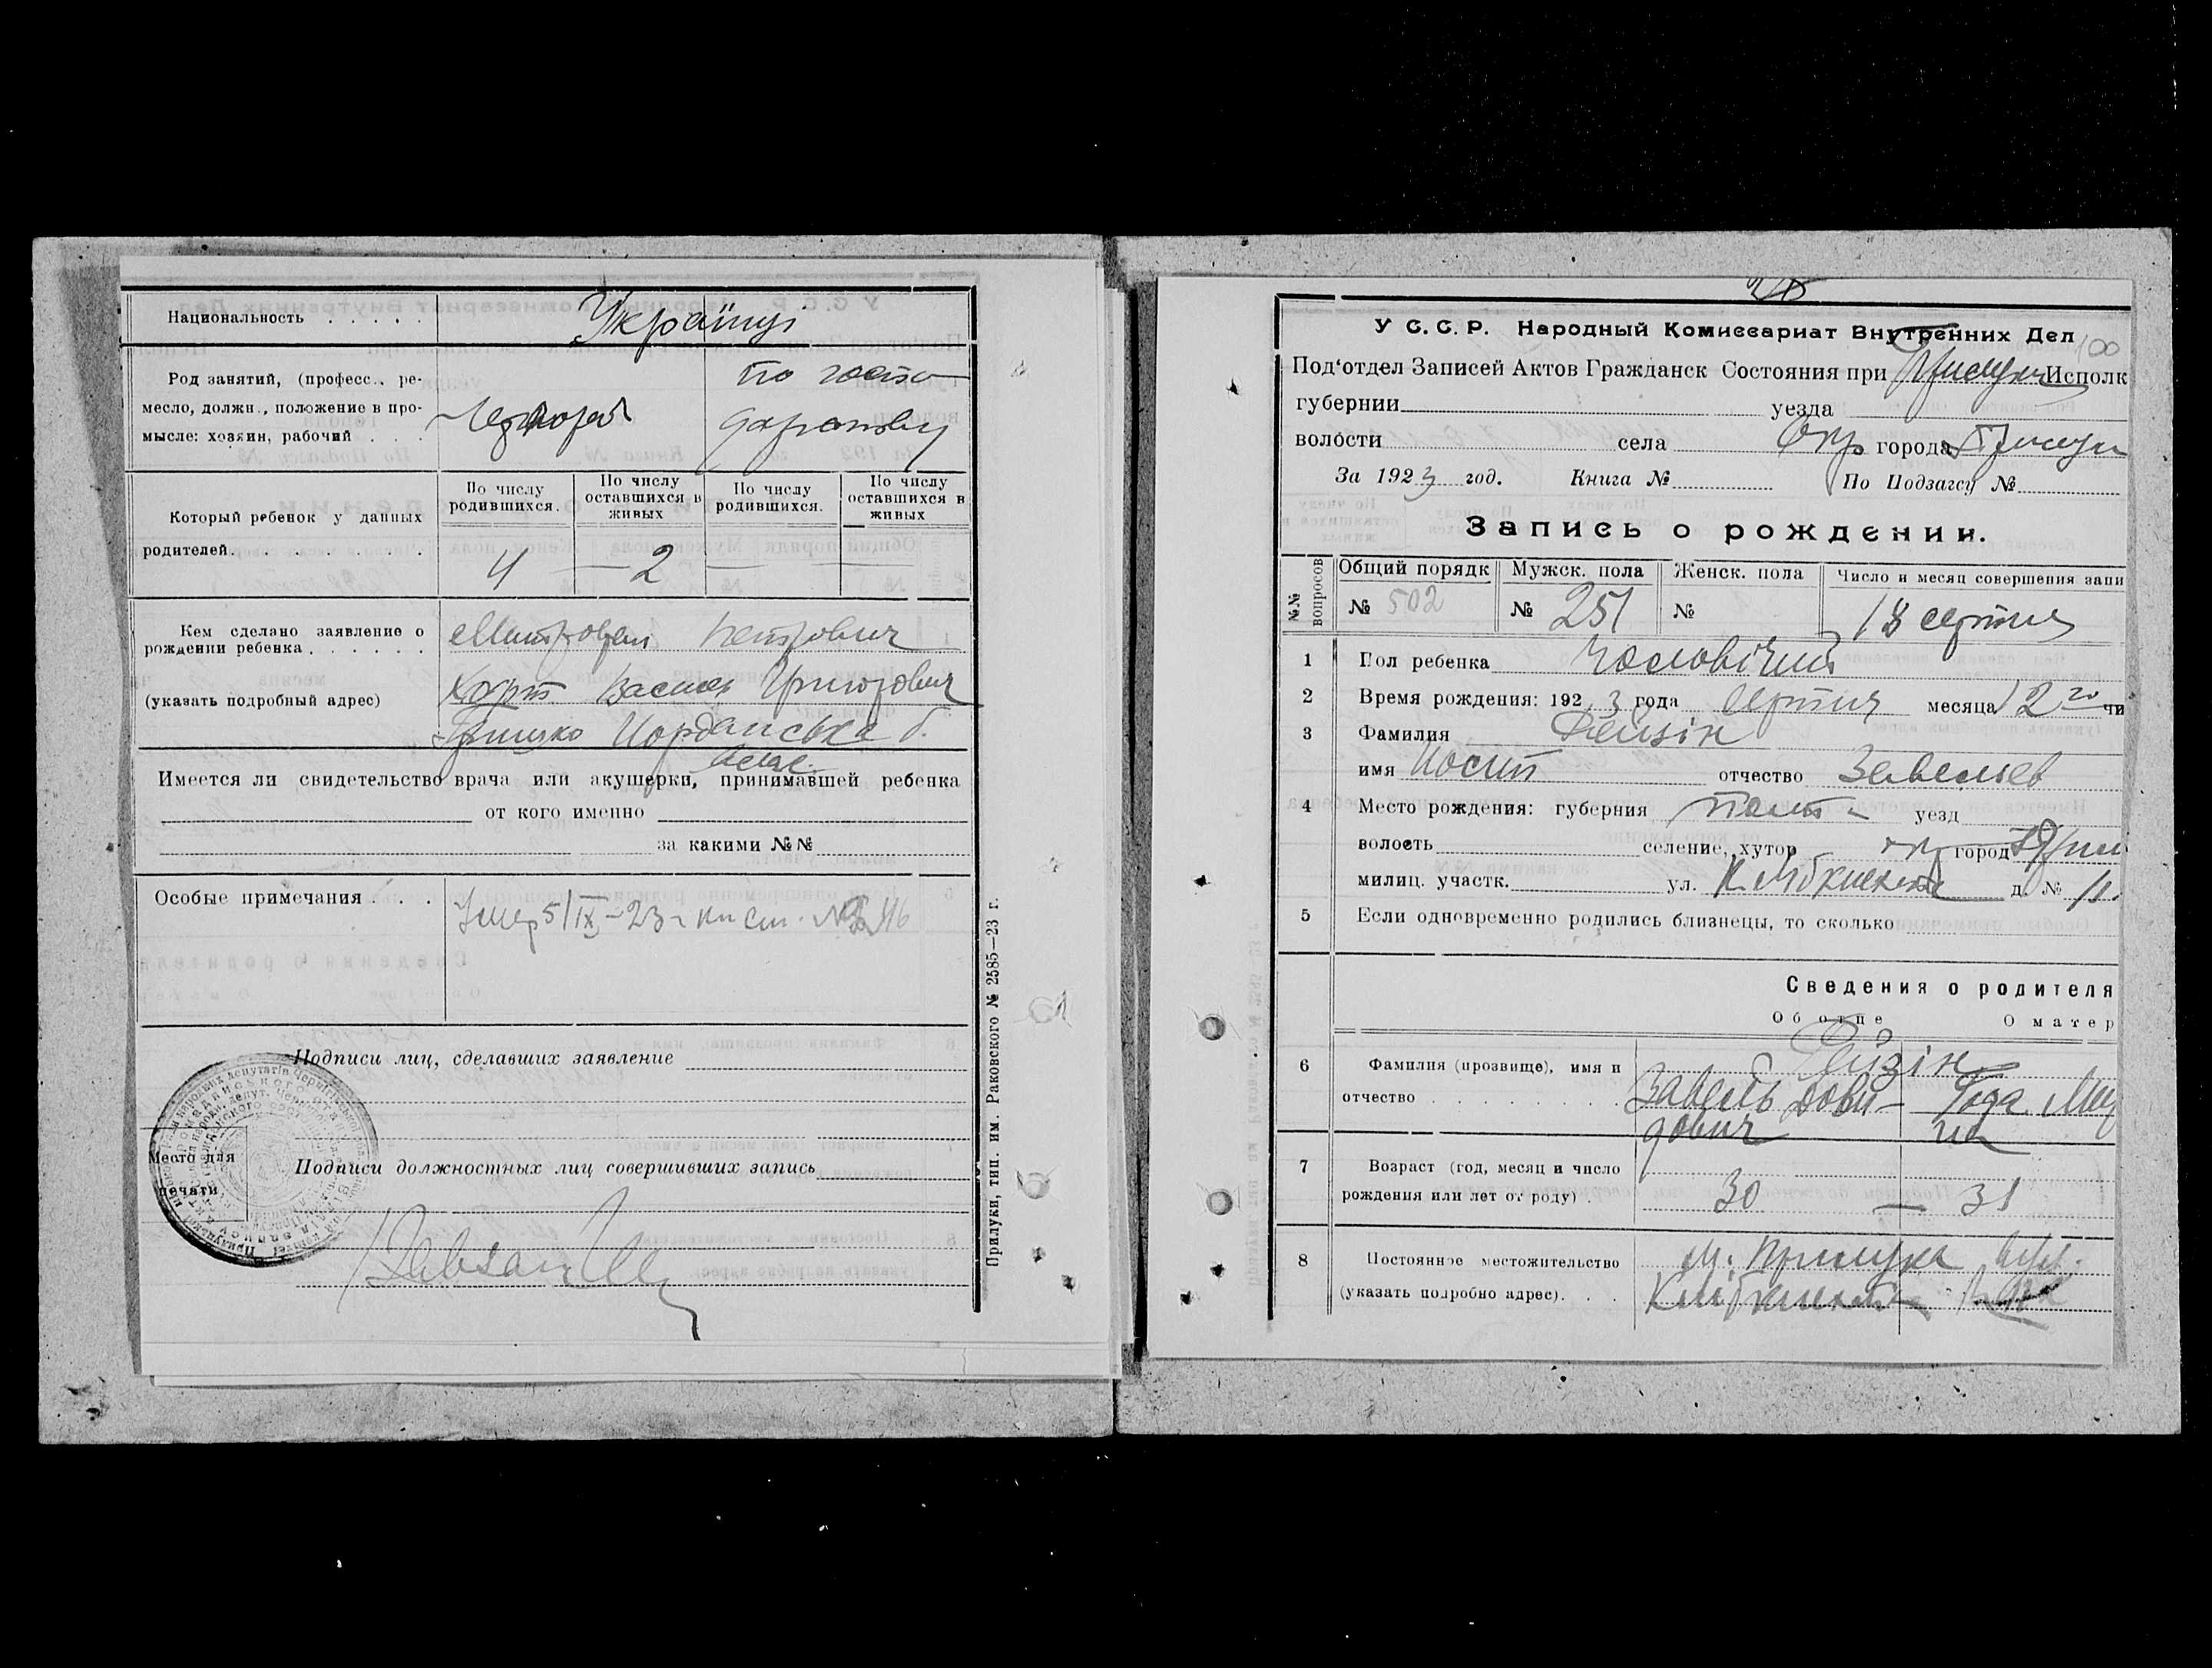 Национальность . . . . . Українці
Род занятий, (професс., ре-
месло, должн., положение в про-
мысле: хозяин, рабочий . . .
по госпо
дарству
Который ребенок у данных
родителей . . . . . . .
По числу родившихся.
По числу оставшихся в живых
По числу родившихся.
По числу оставшихся в живых
4 — 2 — —
Кем сделано заявление о
рождении ребенка . . . . . .
(указать подробный адрес)
Митрофан Петрович
Василь Григорович
Йорданська
Имеется ли свидетельство врача или акушерки, принимавшей ребенка
от кого именно
за какими №№
Особые примечания . . . Умер 5/IX-23 г
Подписи лиц, сделавших заявление
Место для
печати
Подписи должностных лиц совершивших запись
Прилуки, тип. им. Раковского № 2585—23 г.
100
У С. С. Р. Народный Комиссариат Внутренних Дел
Под'отдел Записей Актов Гражданск Состояния при Исполк
губернии уезда
волости села Окр города
За 1923 год. Книга № По Подзагсу №
Запись о рождении.
№№ вопросов
Общий порядк
Мужск. пола
Женск. пола
Число и месяц совершения запи
№ 502 № 251 № 18 серпня
1 Пол ребенка чоловічий
2 Время рождения: 1923 года серпня месяца 12 го чи
3 Фамилия Фейзін
имя Йосип отчество Завельев
4 Место рождения: губерния Полт уезд
волость селение, хутор город
милиц. участк. ул. д. №
5 Если одновременно родились близнецы, то сколько
Сведения о родителя
Об отце О матер
6 Фамилия (прозвище), имя и
отчество . . . . . . . .
Фейзін
Завель Дови-
дович
7 Возраст (год, месяц и число
рождения или лет от роду) .
30 — 31
8 Постоянное местожительство
(указать подробно адрес). . .
м. Прилука вул.